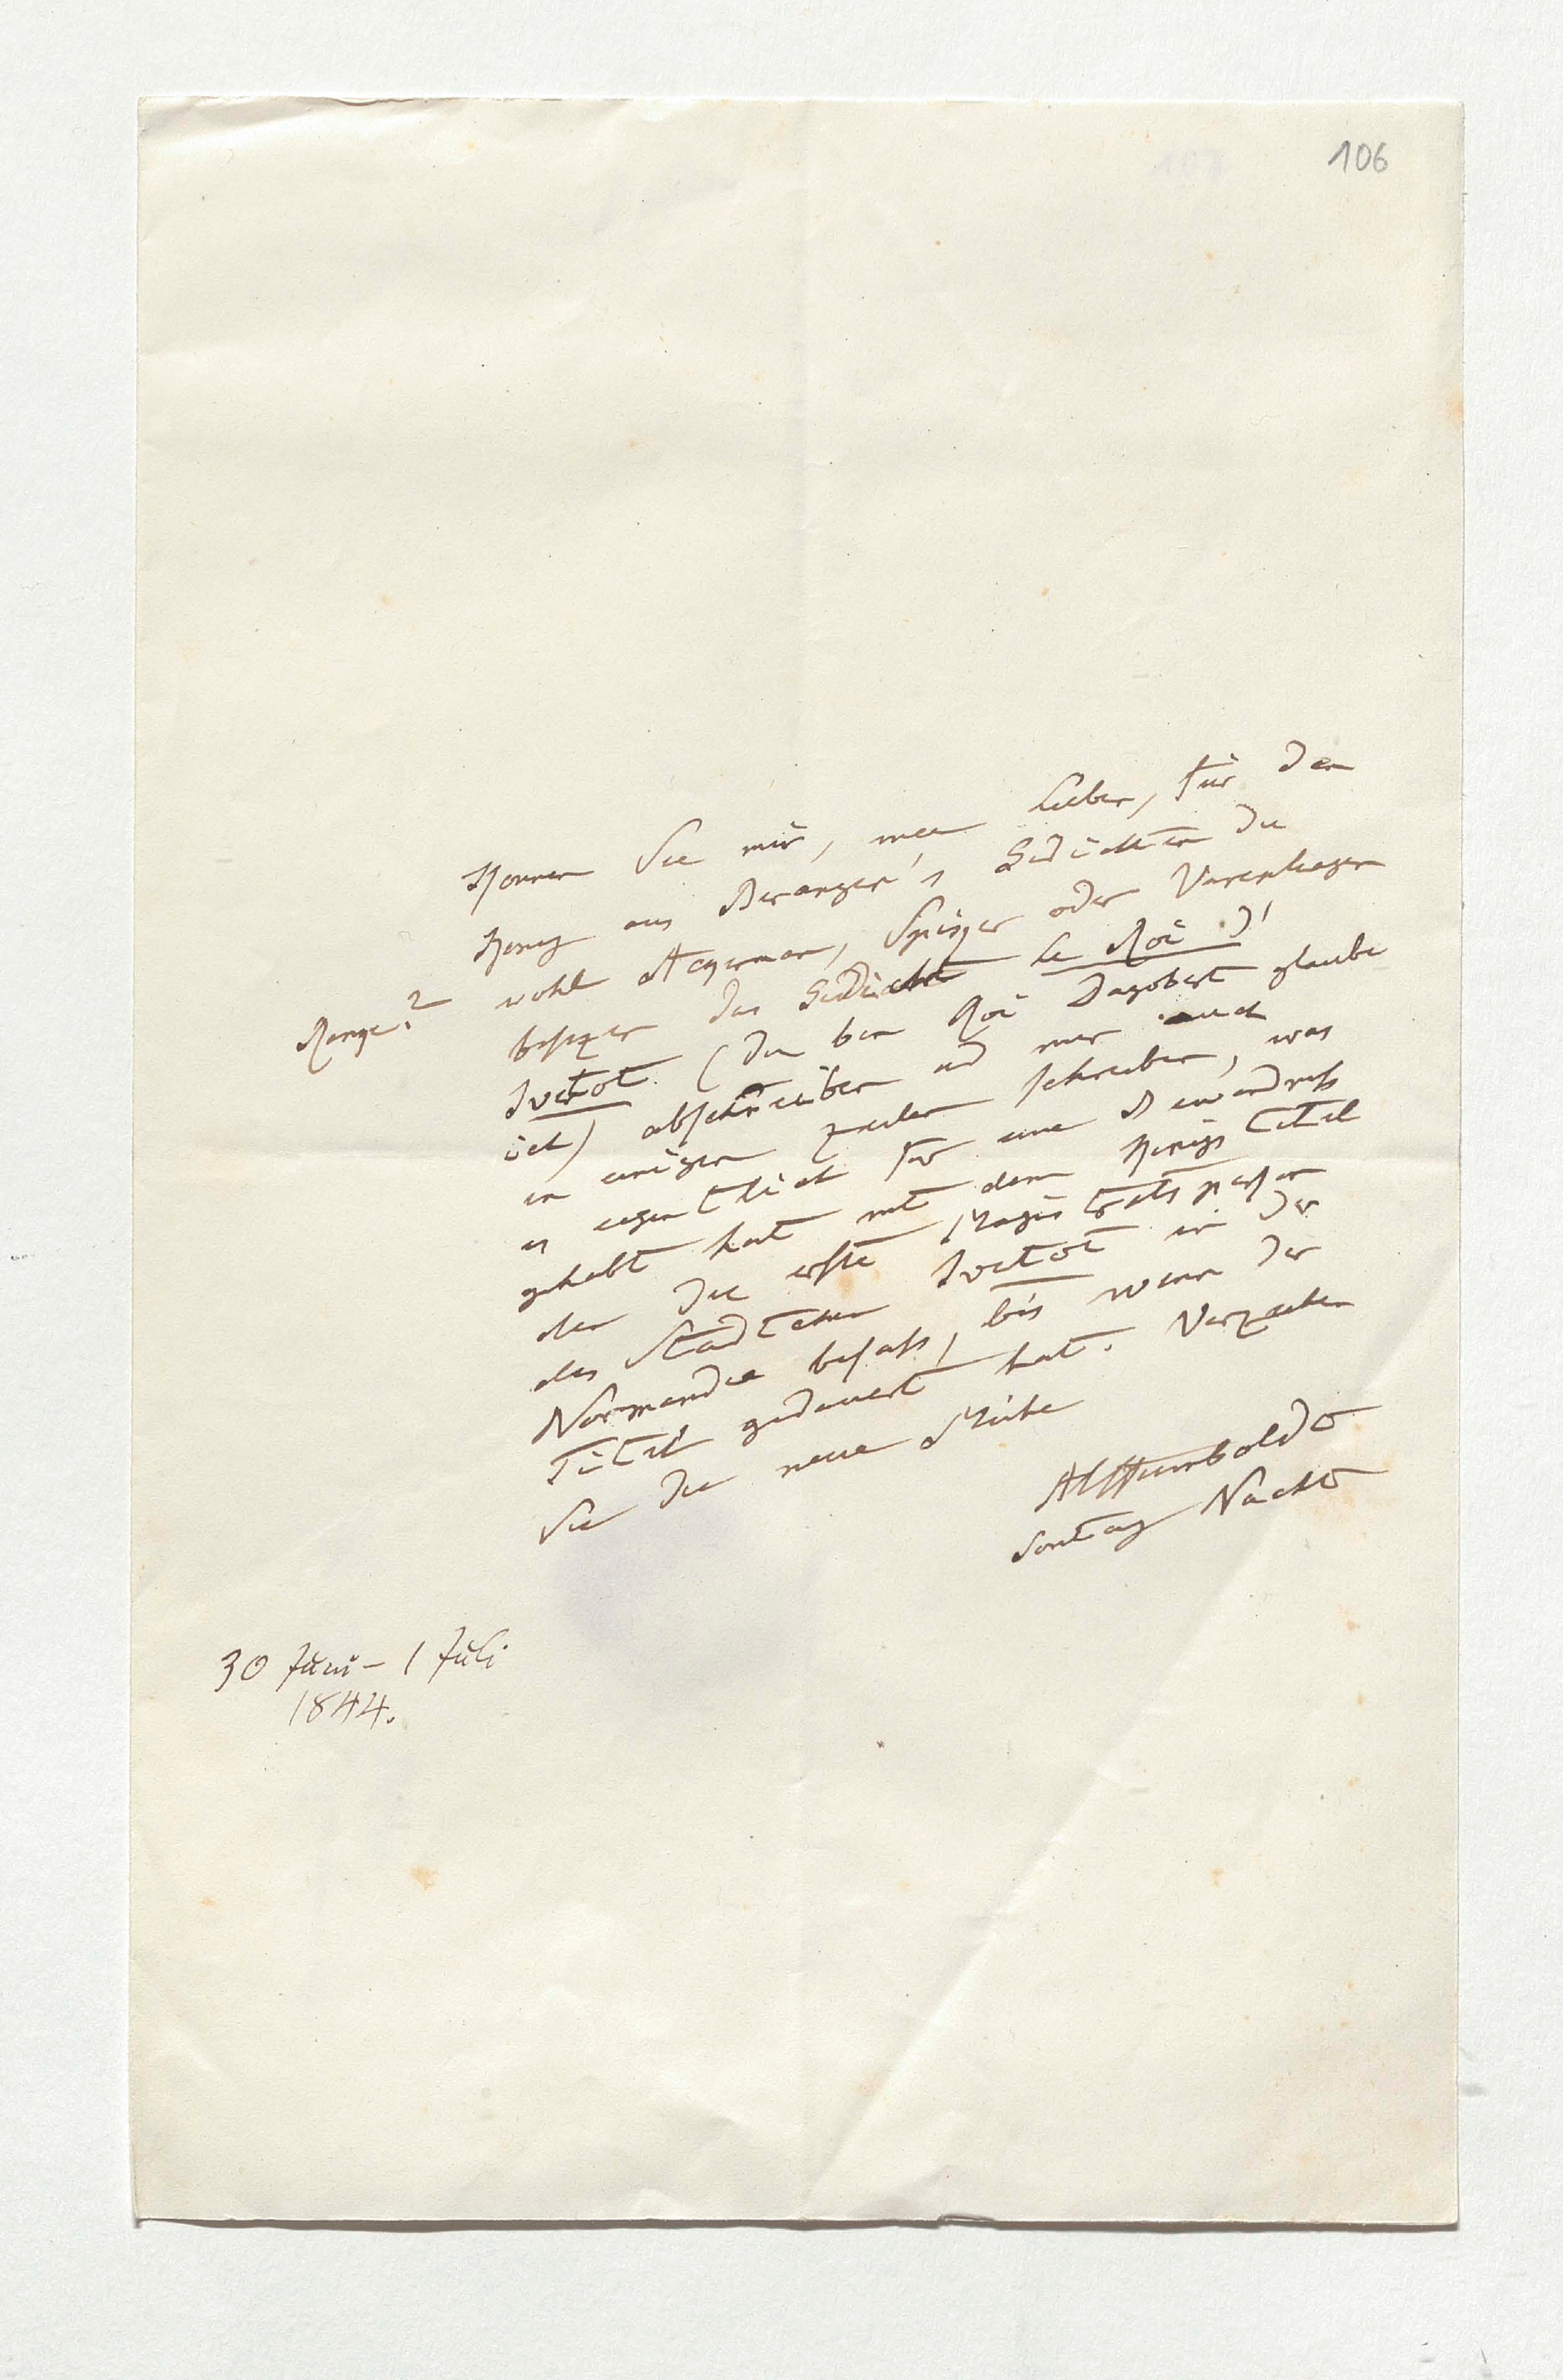 106
Können Sie mir, mein Lieber, für den
König aus Beranger's Gedichten die
wohl Ackerman, Spiker oder Varnhagen
Range?
besizen das Gedicht le Roi d'
Ivetot (den bon Roi Dagobert glaube
ich) abschreiben und mir auch
in einigen Zeilen schreiben, was
es eigentlich für eine Bewandniß
gehabt hat mit dem Königs Titel
den die erste Magistratsperson
des Städtchen Ivetot in der
Normandie besaß, bis wann der
Titel gedauert hat. Verzeihen
Sie die neue Mühe
AlHumboldt
Sontag Nacht
30 Juni – 1 Juli
1844.